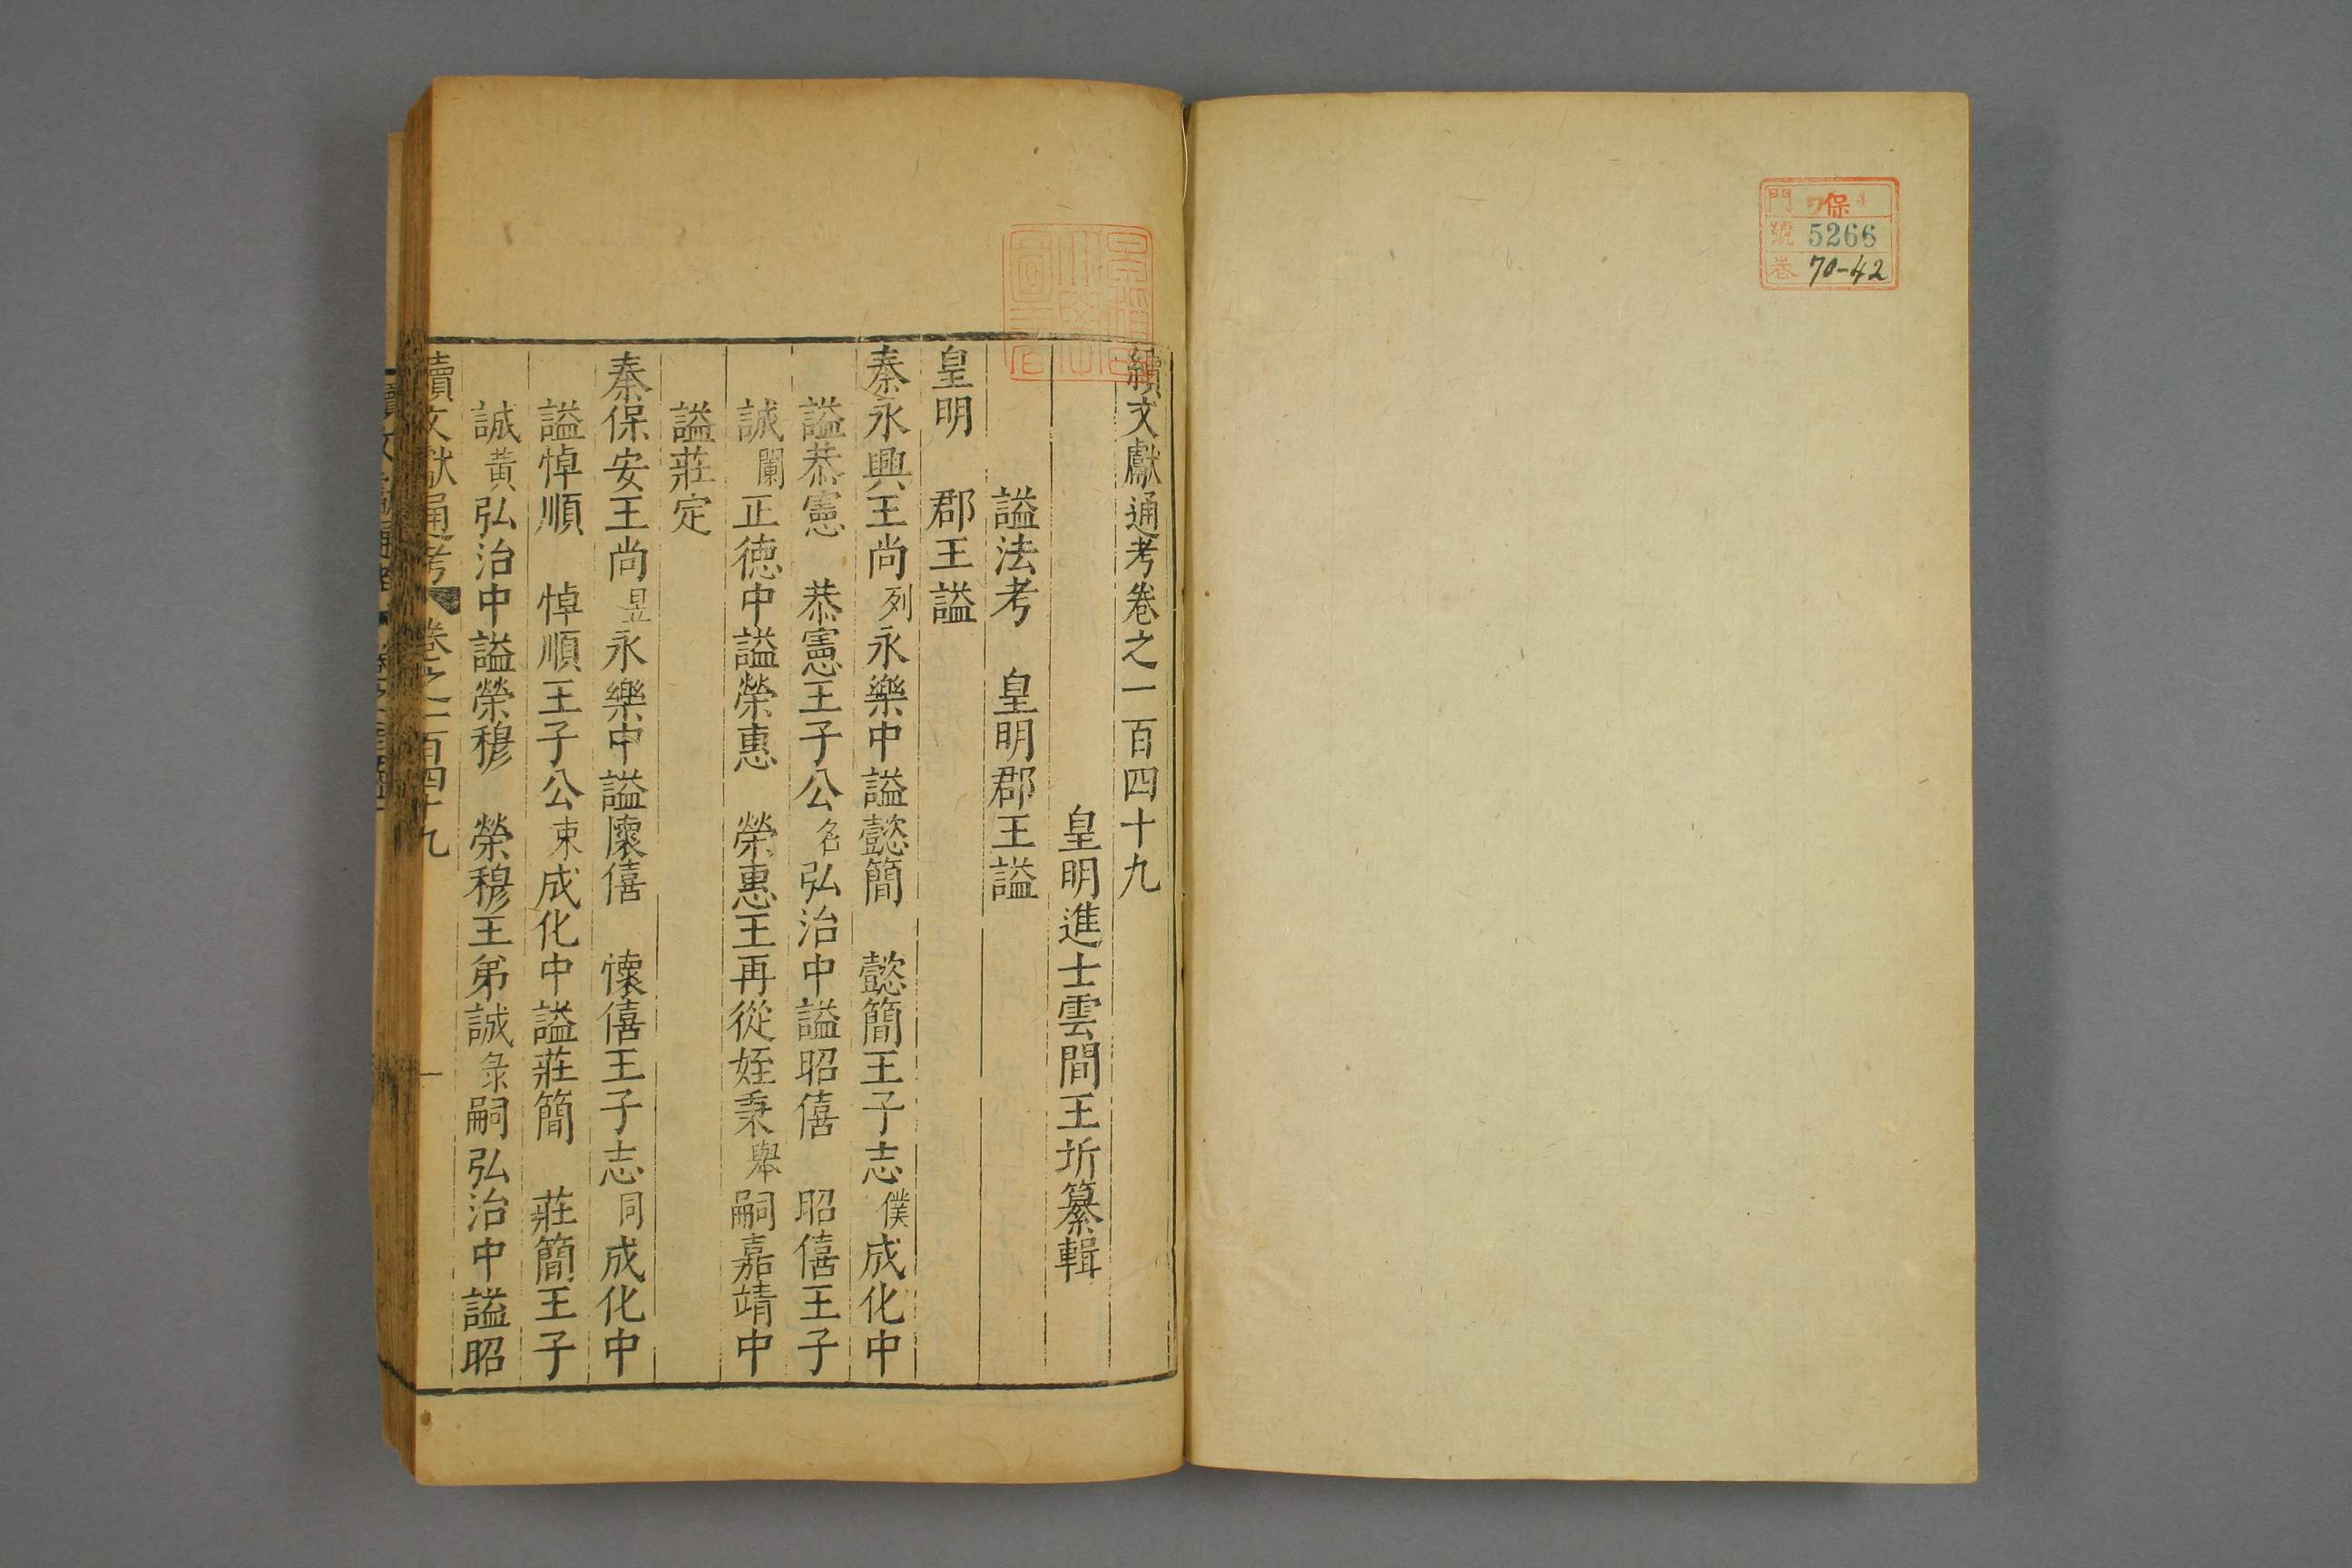 門 保
號 5266
卷 70-42
續文獻通考卷之一百四十九
皇明進士雲間王圻纂輯
諡法考 皇明郡王諡
皇明 郡王諡
秦永興王尚列永樂中諡懿簡 懿簡王子志僕成化中
諡恭憲 恭憲王子公名弘治中諡昭僖 昭僖王子
誠闌正德中諡榮惠 榮惠王再從姪秉舉嗣嘉靖中
諡莊定
秦保安王尚昱永樂中諡懷僖 懷僖王子志同成化中
諡悼順 悼順王子公束成化中諡莊簡 莊簡王子
誠黄弘治中諡榮穆 榮穆王弟誠彔嗣弘治中諡昭
續文獻通考 卷之一百四十九 一